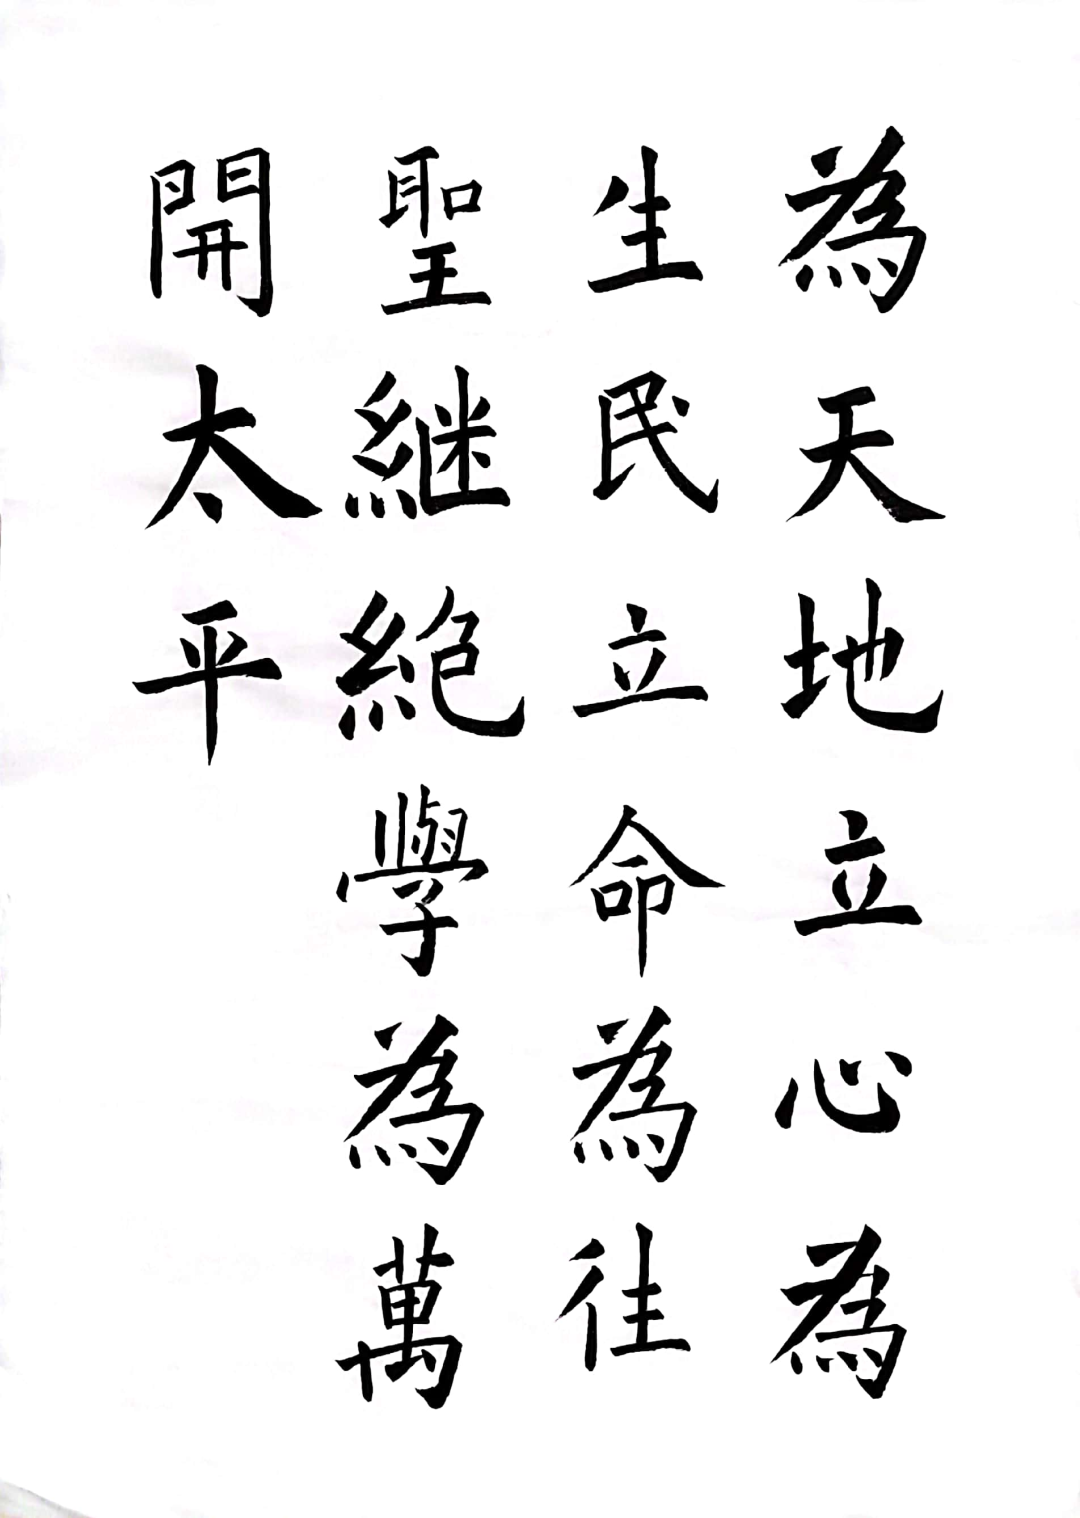 為天地立心為
生民立命為往
聖継絶學為萬
開太平